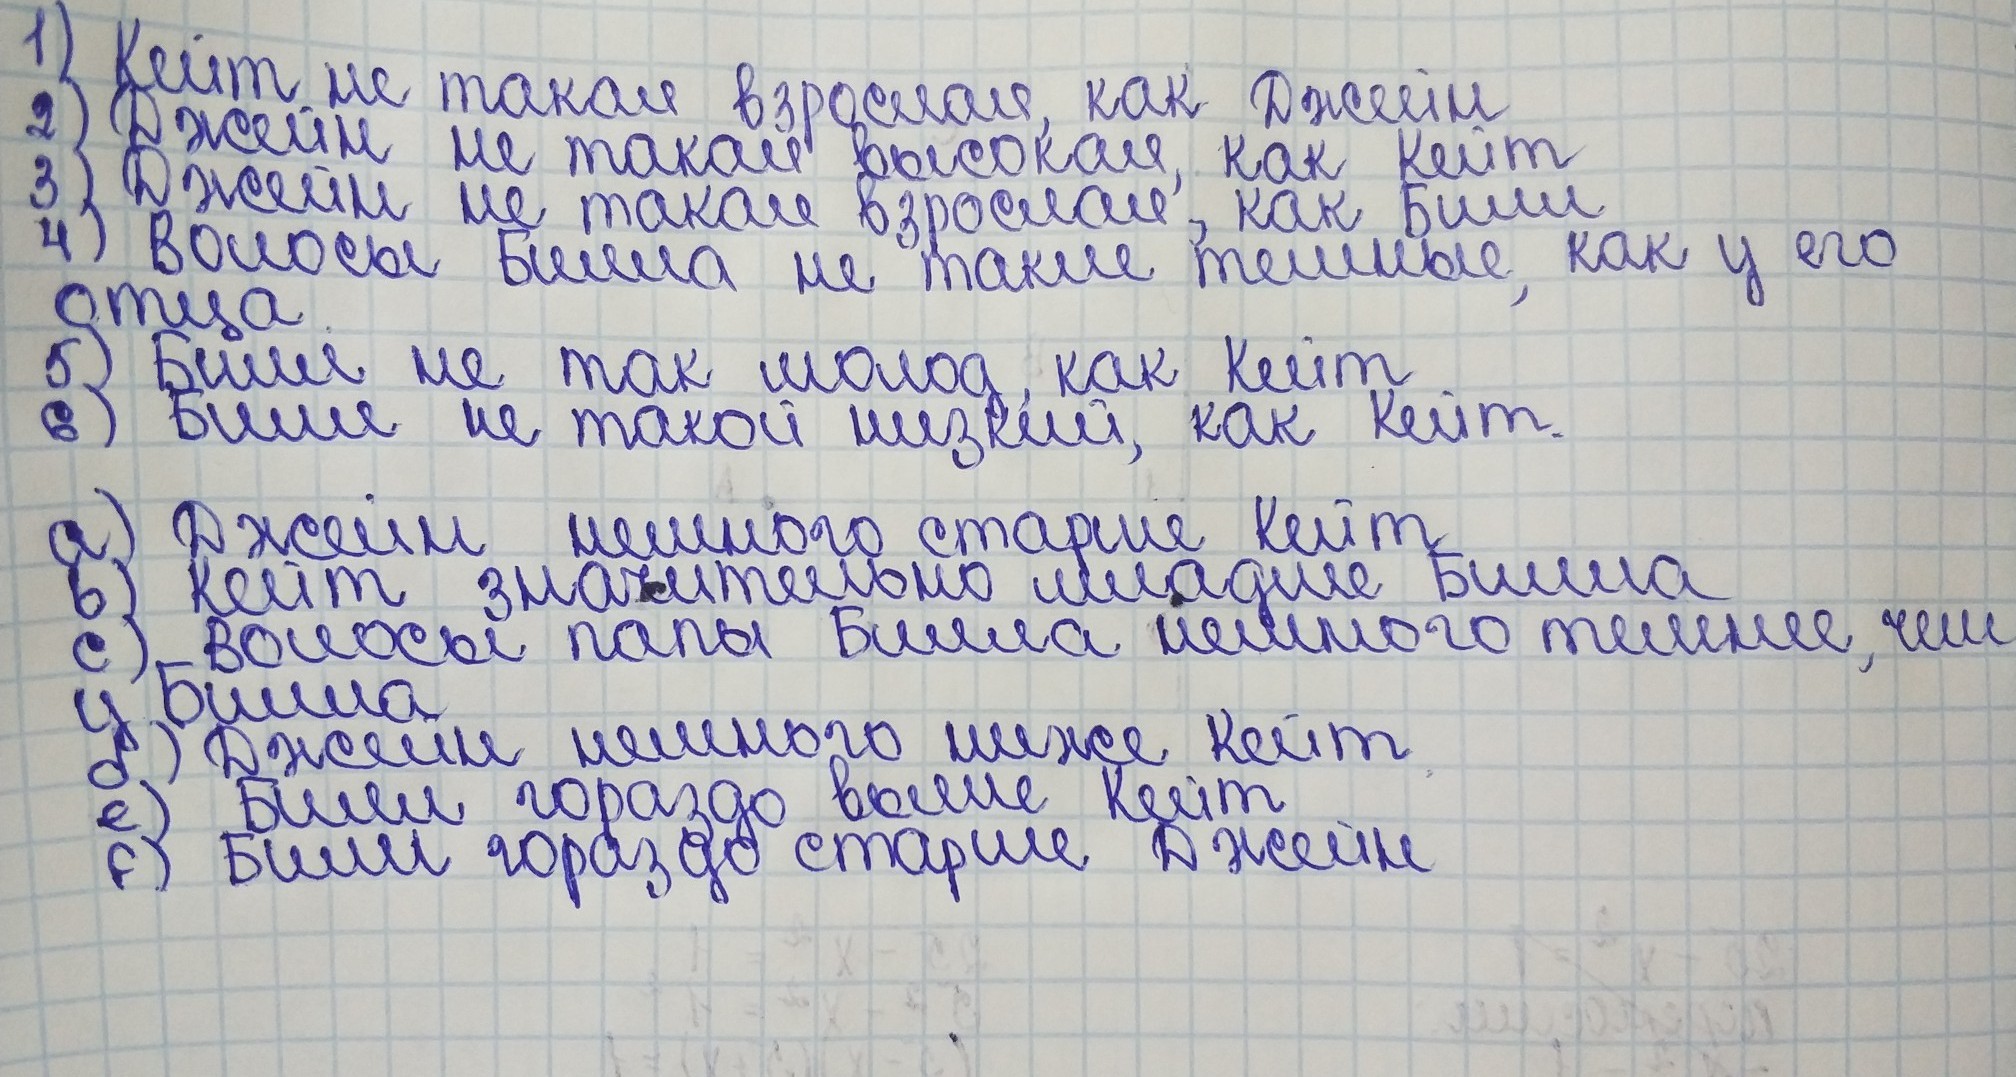 1) Кейт не такая взрослая, как Джейн
2) Джейн не такая высокая, как Кейт
3) Джейн не такая взрослая, как Билл
4) Волосы Билла не такие темные, как у его
отца.
5) Билл не так молод, как Кейт
6) Билл не такой низкий, как Кейт.
a) Джейн немного старше Кейт
b) Кейт значительно младше Билла
c) Волосы папы Билла немного темнее, чем
у Билла
d) Джейн немного ниже Кейт
e) Билл гораздо выше Кейт
f) Билл гораздо старше Джейн